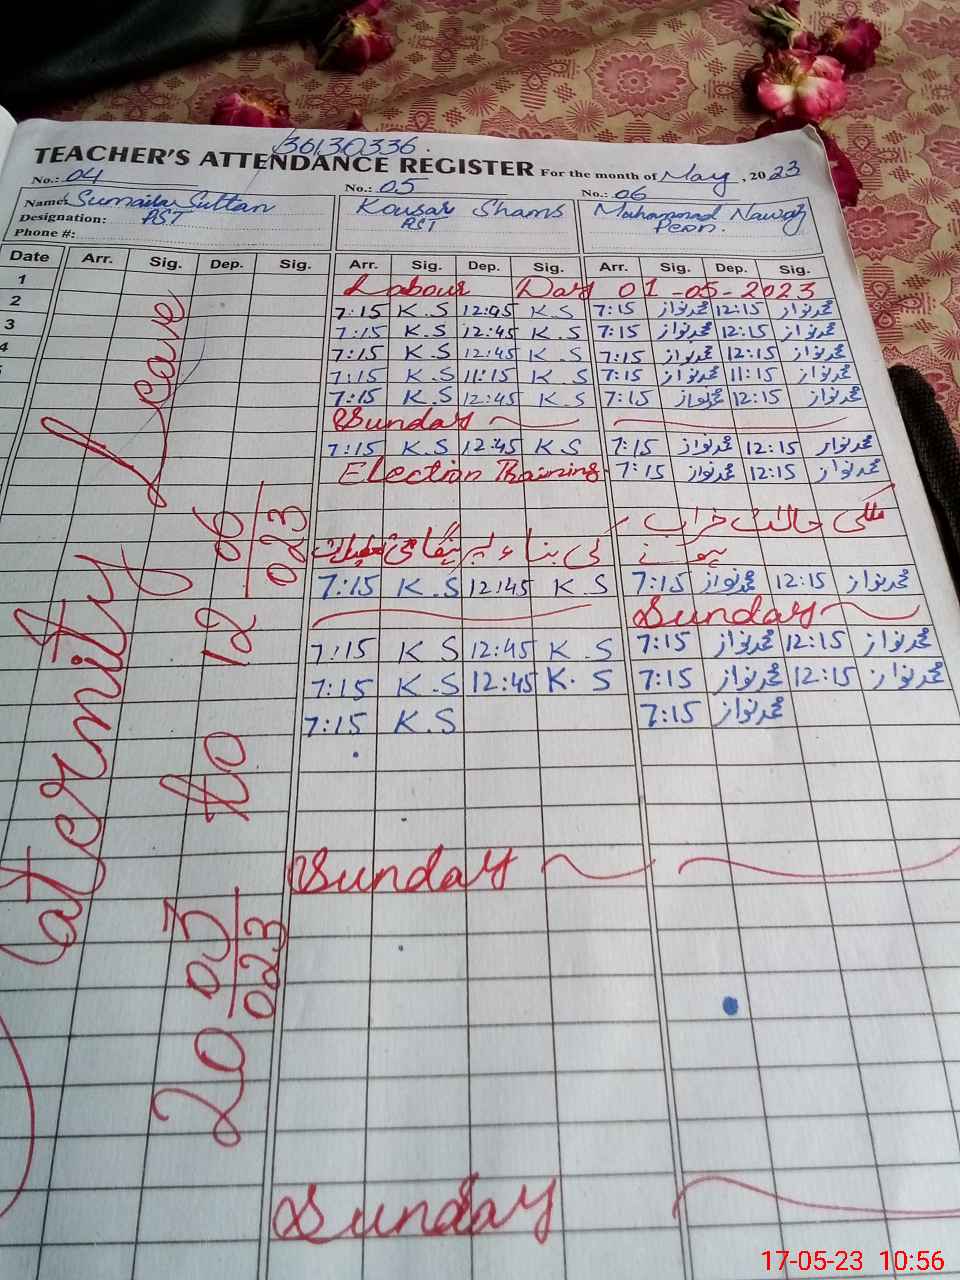 36130336
TEACHER'S ATTENDANCE REGISTER For the month of May, 2023
No.: 04 No.: 05 No.: 06
Name: Sumaila Sultan Kousar Shams Muhammad Nawaz
Designation: PST PST Peon.
Phone #:
Date Arr. Sig. Dep. Sig. Arr. Sig. Dep. Sig. Arr. Sig. Dep. Sig.
1 Labour Day 01-05-2023
2 7:15 K.S 12:45 K.S 7:15 محمد نواز 12:15 محمد نواز
3 7:15 K.S 12:45 K.S 7:15 محمد نواز 12:15 محمد نواز
4 7:15 K.S 12:45 K.S 7:15 محمد نواز 12:15 محمد نواز
7:15 K.S 11:15 K.S 7:15 محمد نواز 11:15 محمد نواز
7:15 K.S 12:45 K.S 7:15 محمد نواز 12:15 محمد نواز
Sunday
7:15 K.S 12:45 K.S 7:15 محمد نواز 12:15 محمد نواز
Election Training 7:15 محمد نواز 12:15 محمد نواز
ملکی حالات خراب
ہونے کی بناء پر ہنگامی تعطیلات
7:15 K.S 12:45 K.S 7:15 محمد نواز 12:15 محمد نواز
Sunday
7:15 K S 12:45 K.S 7:15 محمد نواز 12:15 محمد نواز
7:15 K.S 12:45 K.S 7:15 محمد نواز 12:15 محمد نواز
7:15 K.S 7:15 محمد نواز
Sunday
Sunday
aternity Leave
20 03/023 to 12 06/023
17-05-23 10:56